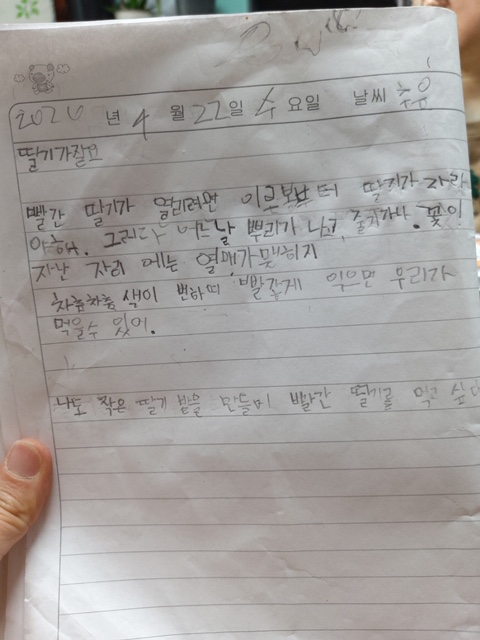 2026 년 4 월 22일 수 요일 날씨
딸기가잘요
빨간 딸기가 열리려면 이로보부터 딸기가 자라
야해. 그러다 어느날 뿌리가 나고, 줄기가나. 꽃이
지난 자리 에는 열매가맺히지
차츰차츰 색이 변하며 빨갛게 익으면 우리가
먹을수 있어.
나도 작은 딸기 밭을 만들어 빨간 딸기를 먹고 싶